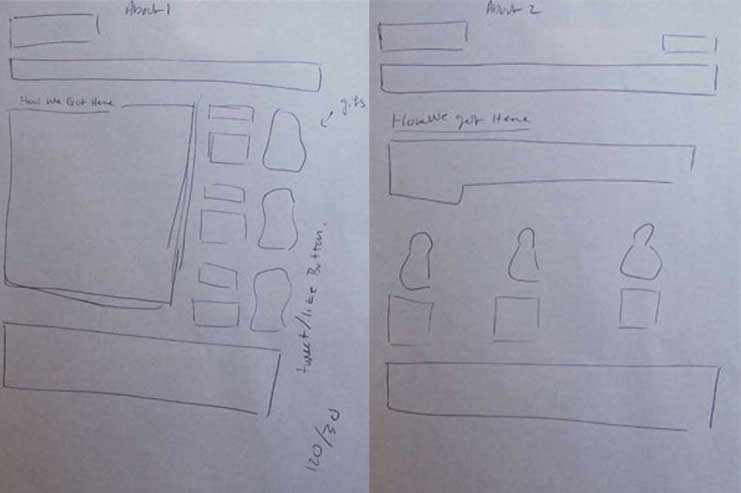 About 1
How We Got Here
gifs
tweet/like Button.
120/30
About 2
How we got Here